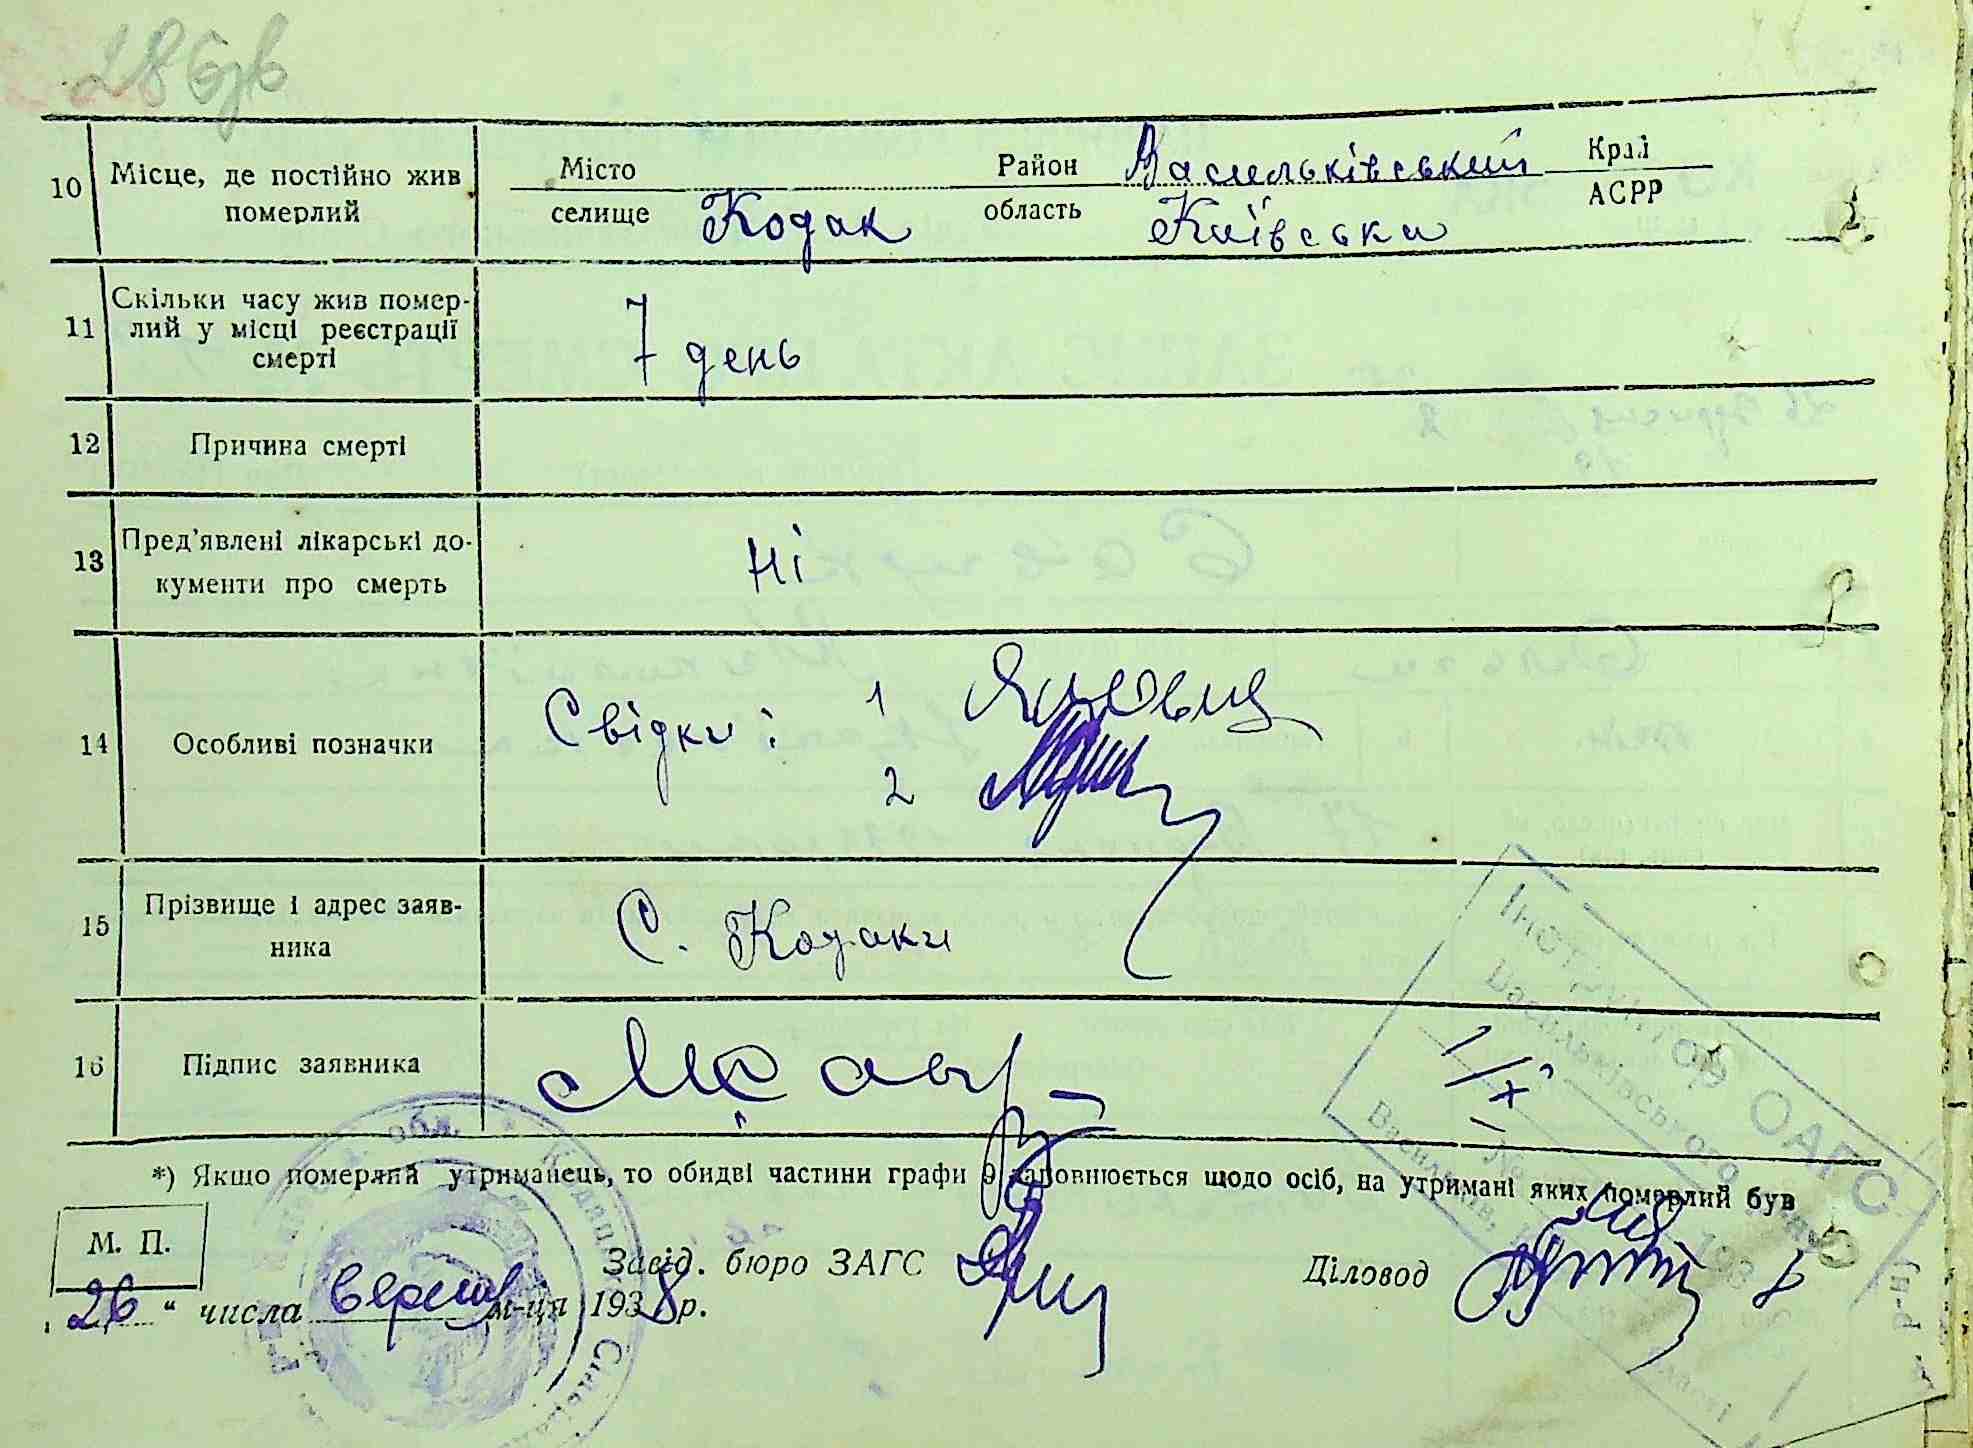 10 Місце, де постійно жив померлий
Місто
Район Васильківський Край
селище Кодак область Київська АСРР
11 Скільки часу жив помер-
лий у місці реєстрації
смерті
7 день
12 Причина смерті
13 Пред'явлені лікарські до-
кументи про смерть
Ні
14 Особливі позначки
Свідки: 1
2
15 Прізвище і адрес заяв-
ника
С. Кодаки
16 Підпис заявника
*) Якщо померлий утриманець, то обидві частини графи 9 заповнюється щодо осіб, на утримані яких померлий був
М. П.
Завід. бюро ЗАГС
Діловод
26 " числа вересня м-ця 1938 р.
Інструктор ОАГС
Васильківського